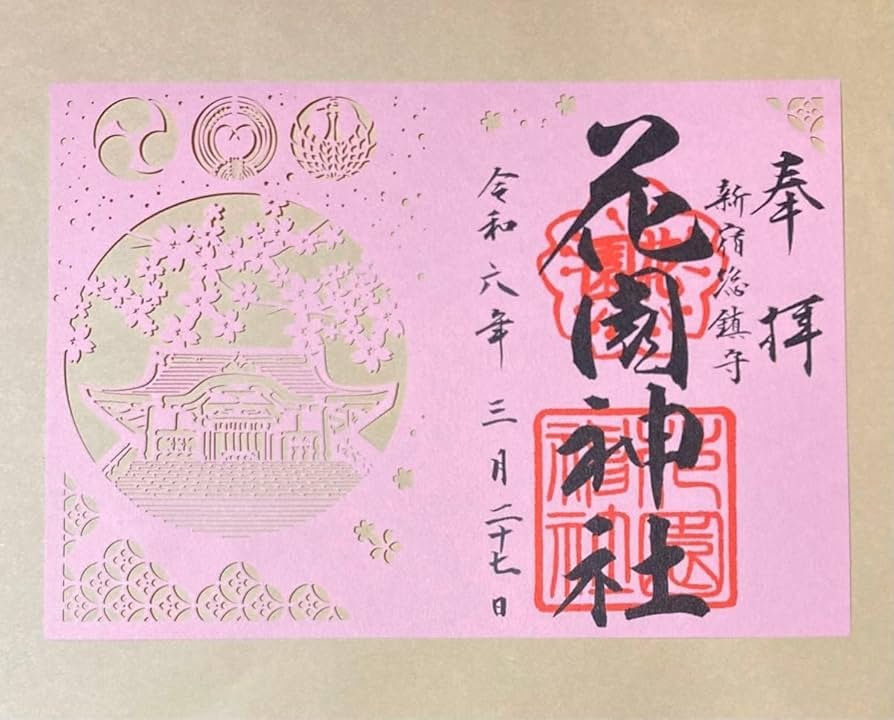 奉拝
新宿総鎮守
花園神社
令和六年三月二十七日
花園神社